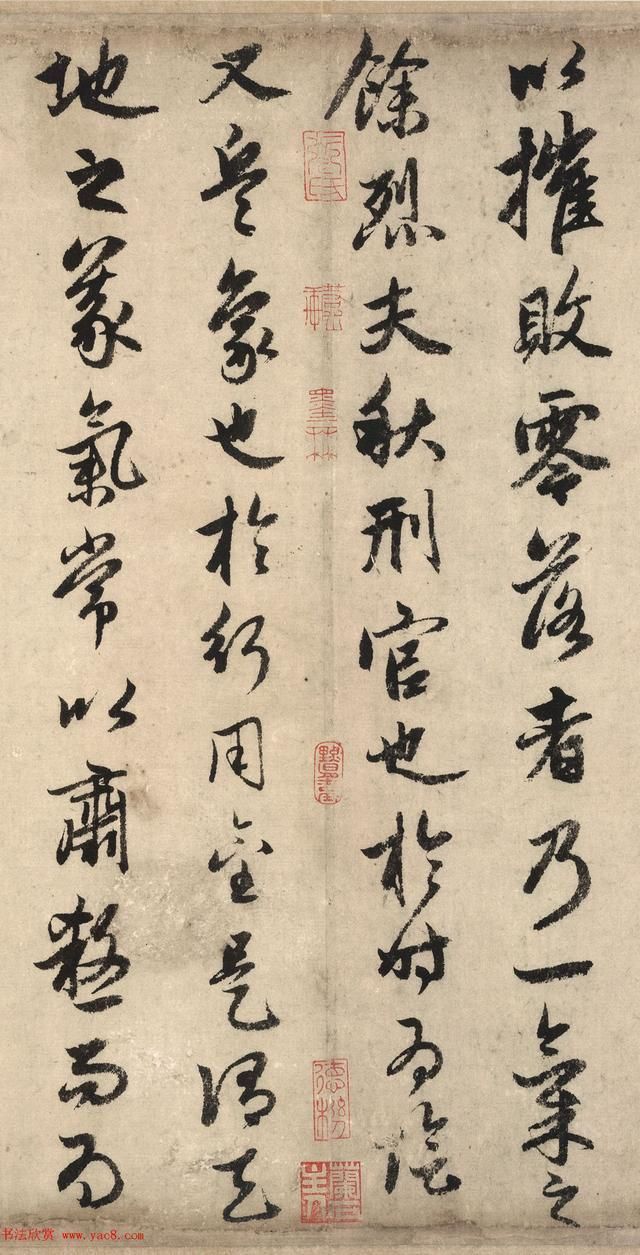 以摧敗零落者乃一氣之
餘烈夫秋刑官也於时為陰
又兵象也於行用金是謂天
地之義氣常以肅殺而為
书法欣赏 www.yac8.com